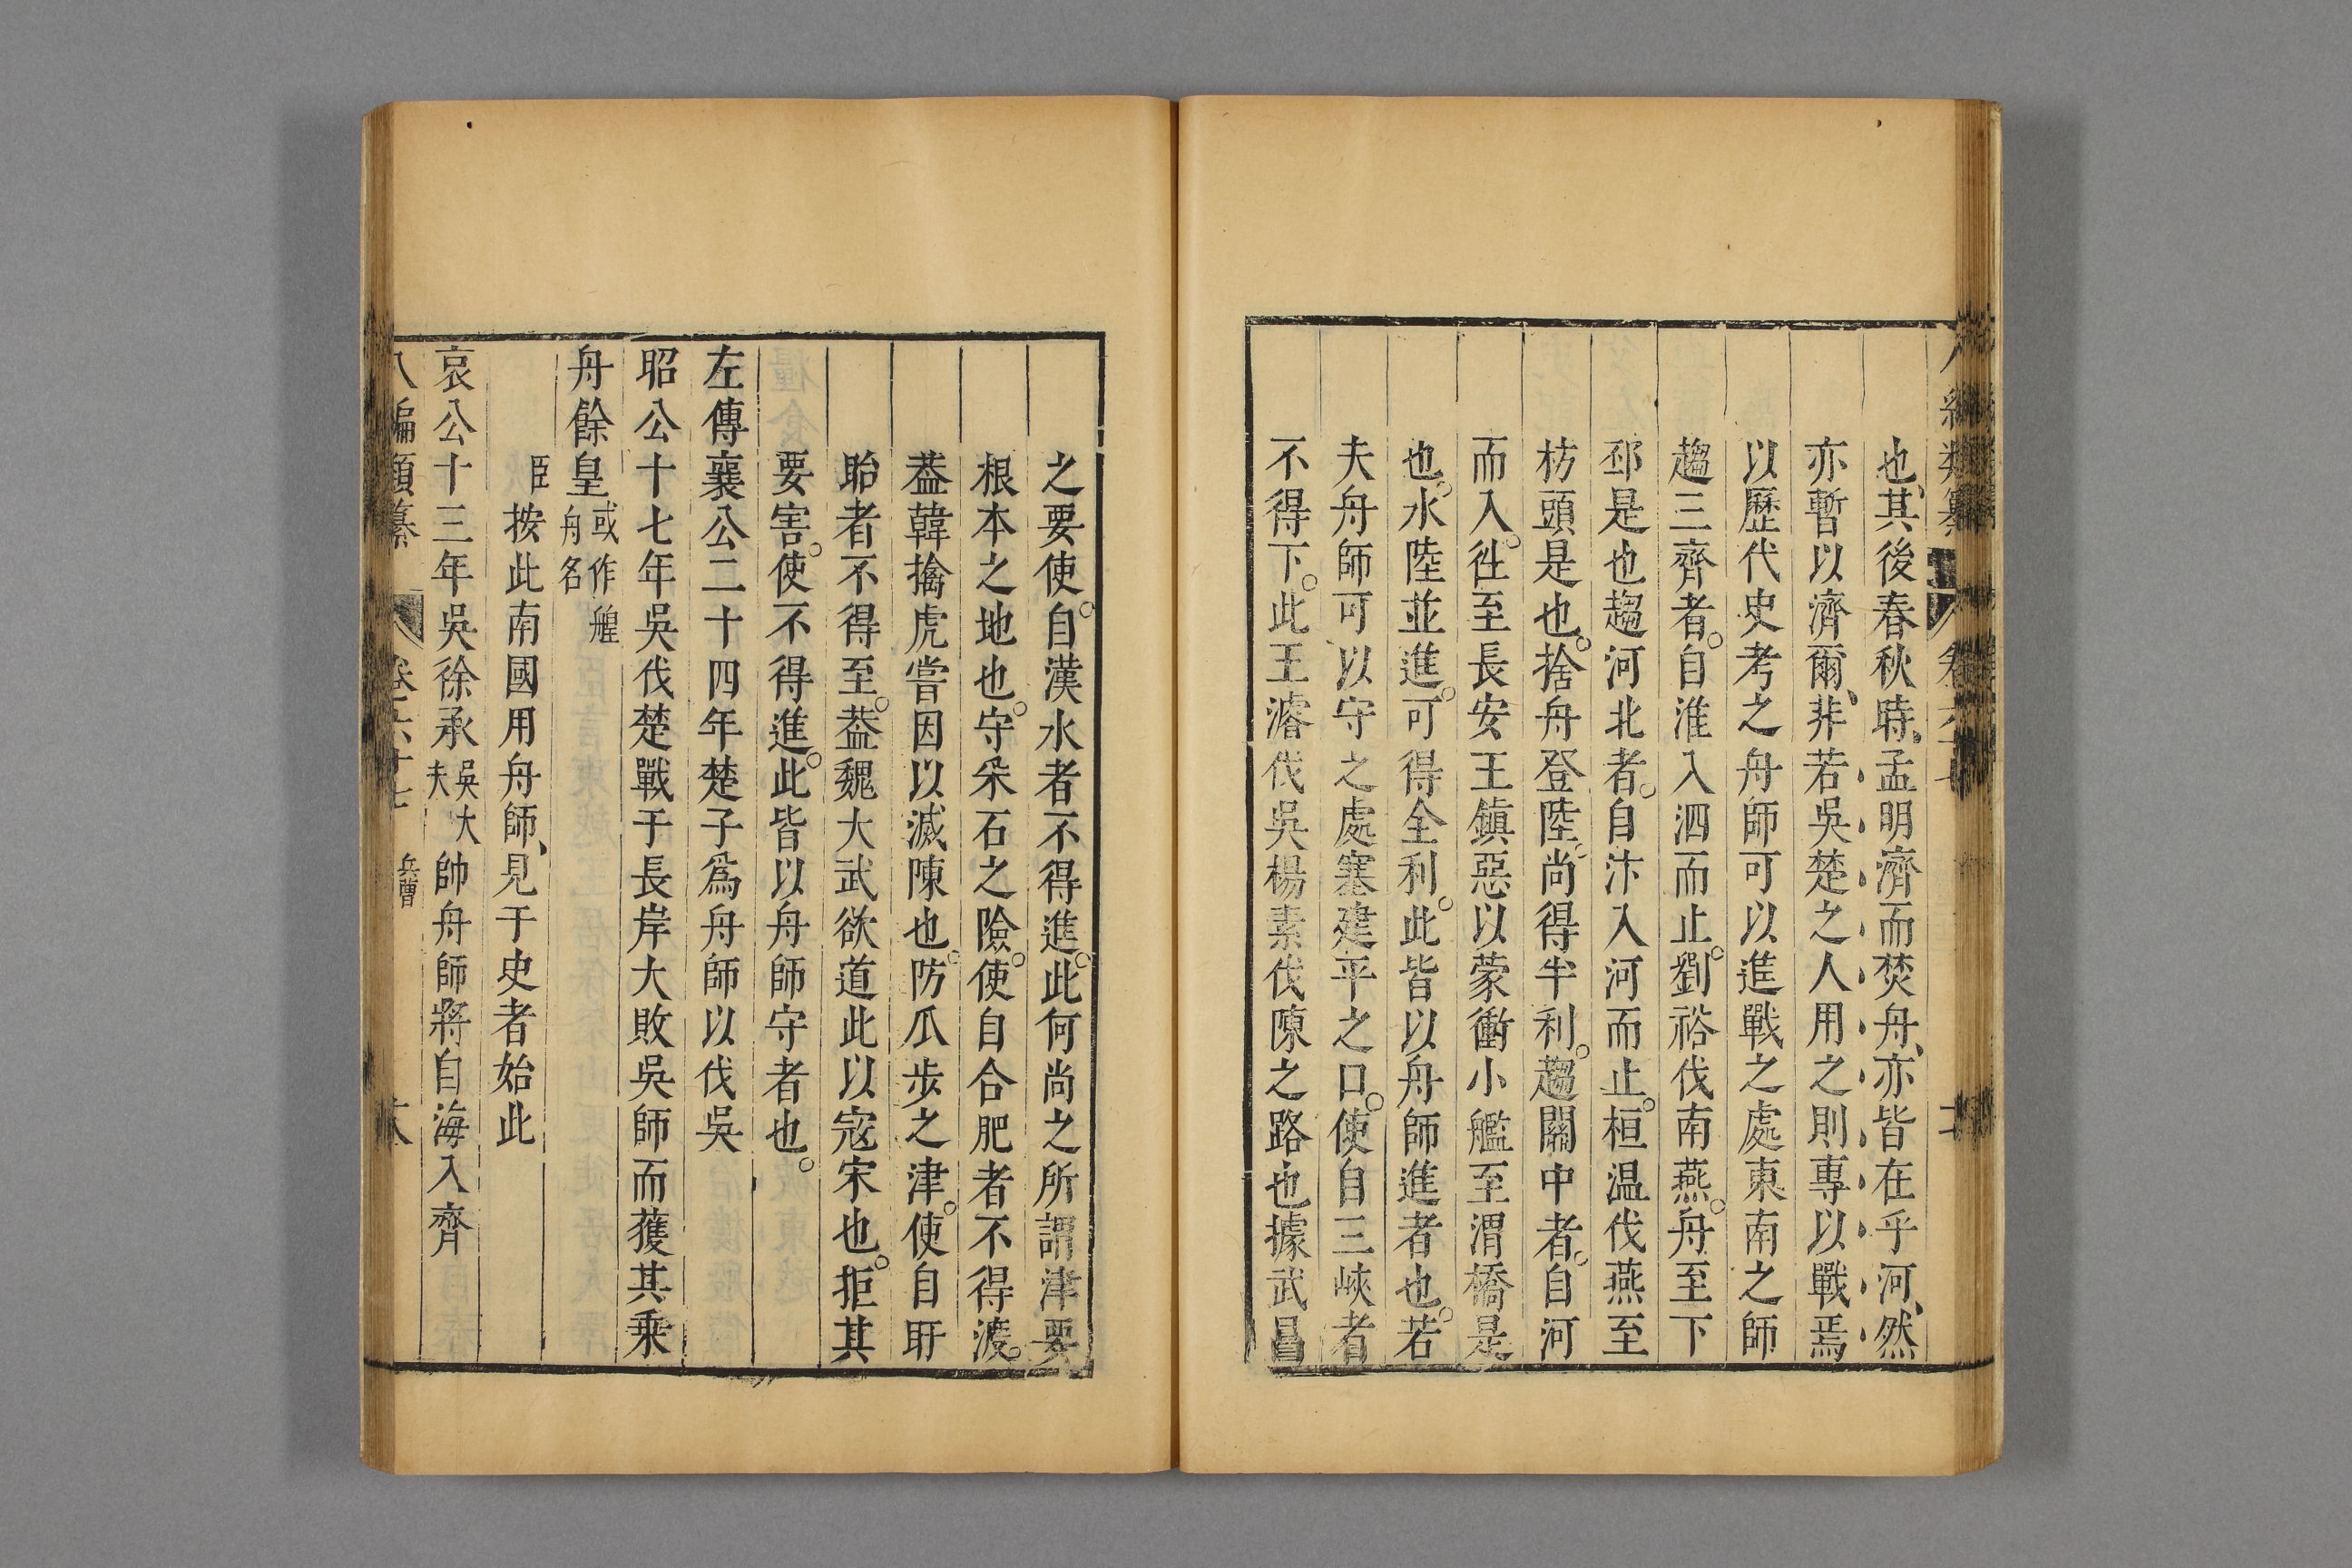 也其後春秋時孟明濟而焚舟亦皆在乎河然
亦暫以濟爾非若吳楚之人用之則專以戰焉
以歷代史考之舟師可以進戰之處東南之師
趨三齊者自淮入泗而止劉裕伐南燕舟至下
邳是也趨河北者自汴入河而止桓温伐燕至
枋頭是也捨舟登陸尚得半利趨關中者自河
而入徃至長安王鎮惡以蒙衝小艦至渭橋是
也水陸並進可得全利此皆以舟師進者也若
夫舟師可以守之處塞建平之口使自三峽者
不得下此王濬伐吳楊素伐陳之路也據武昌
之要使自漢水者不得進此何尚之所謂津要
根本之地也守采石之險使自合肥者不得渡
葢韓擒虎嘗因以滅陳也防瓜步之津使自盱
眙者不得至葢魏大武欲道此以寇宋也拒其
要害使不得進此皆以舟師守者也
左傳襄公二十四年楚子爲舟師以伐吳
昭公十七年吳伐楚戰于長岸大敗吳師而獲其乗
舟餘皇或作艎舟名
臣按此南國用舟師見于史者始此
哀公十三年吳徐承吳大夫帥舟師將自海入齊
八編類纂 卷六十七 兵曹